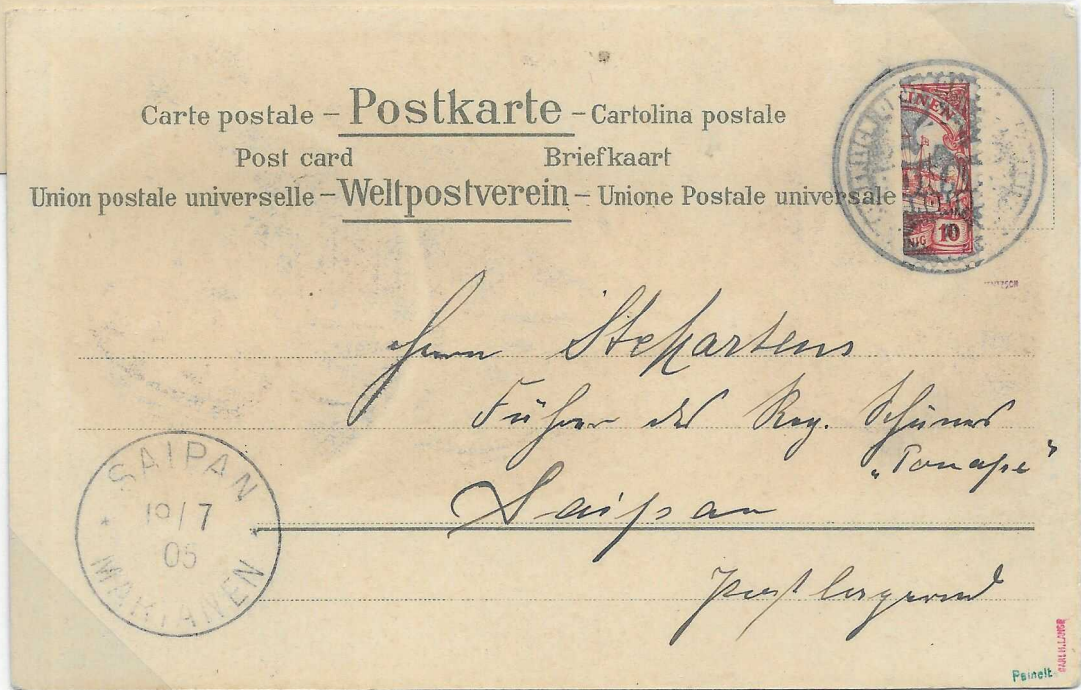 Carte postale – Postkarte – Cartolina postale
Post card Briefkaart
Union postale universelle – Weltpostverein – Unione Postale universale
INEN
NIG 10
Herrn Martens
Führer des Reg. Schuners
„Ponape"
Saipan
postlagernd
SAIPAN
19/7
05
MARIANEN
Peinelt